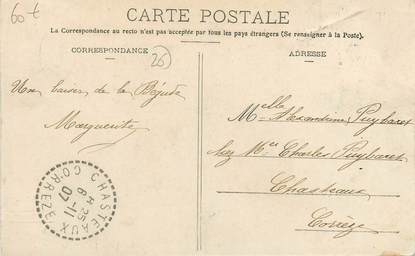 60 t
CARTE POSTALE
La Correspondance au recto n'est pas acceptée par tous les pays étrangers (Se renseigner à la Poste).
CORRESPONDANCE
26
Un baiser de la Bégude
Marguerite
CHASTEAUX
25
6 -11
07
CORREZE
ADRESSE
Melle Alexandrine Puybaret
chez Mr Charles Puybaret
Chasteaux
Corrèze